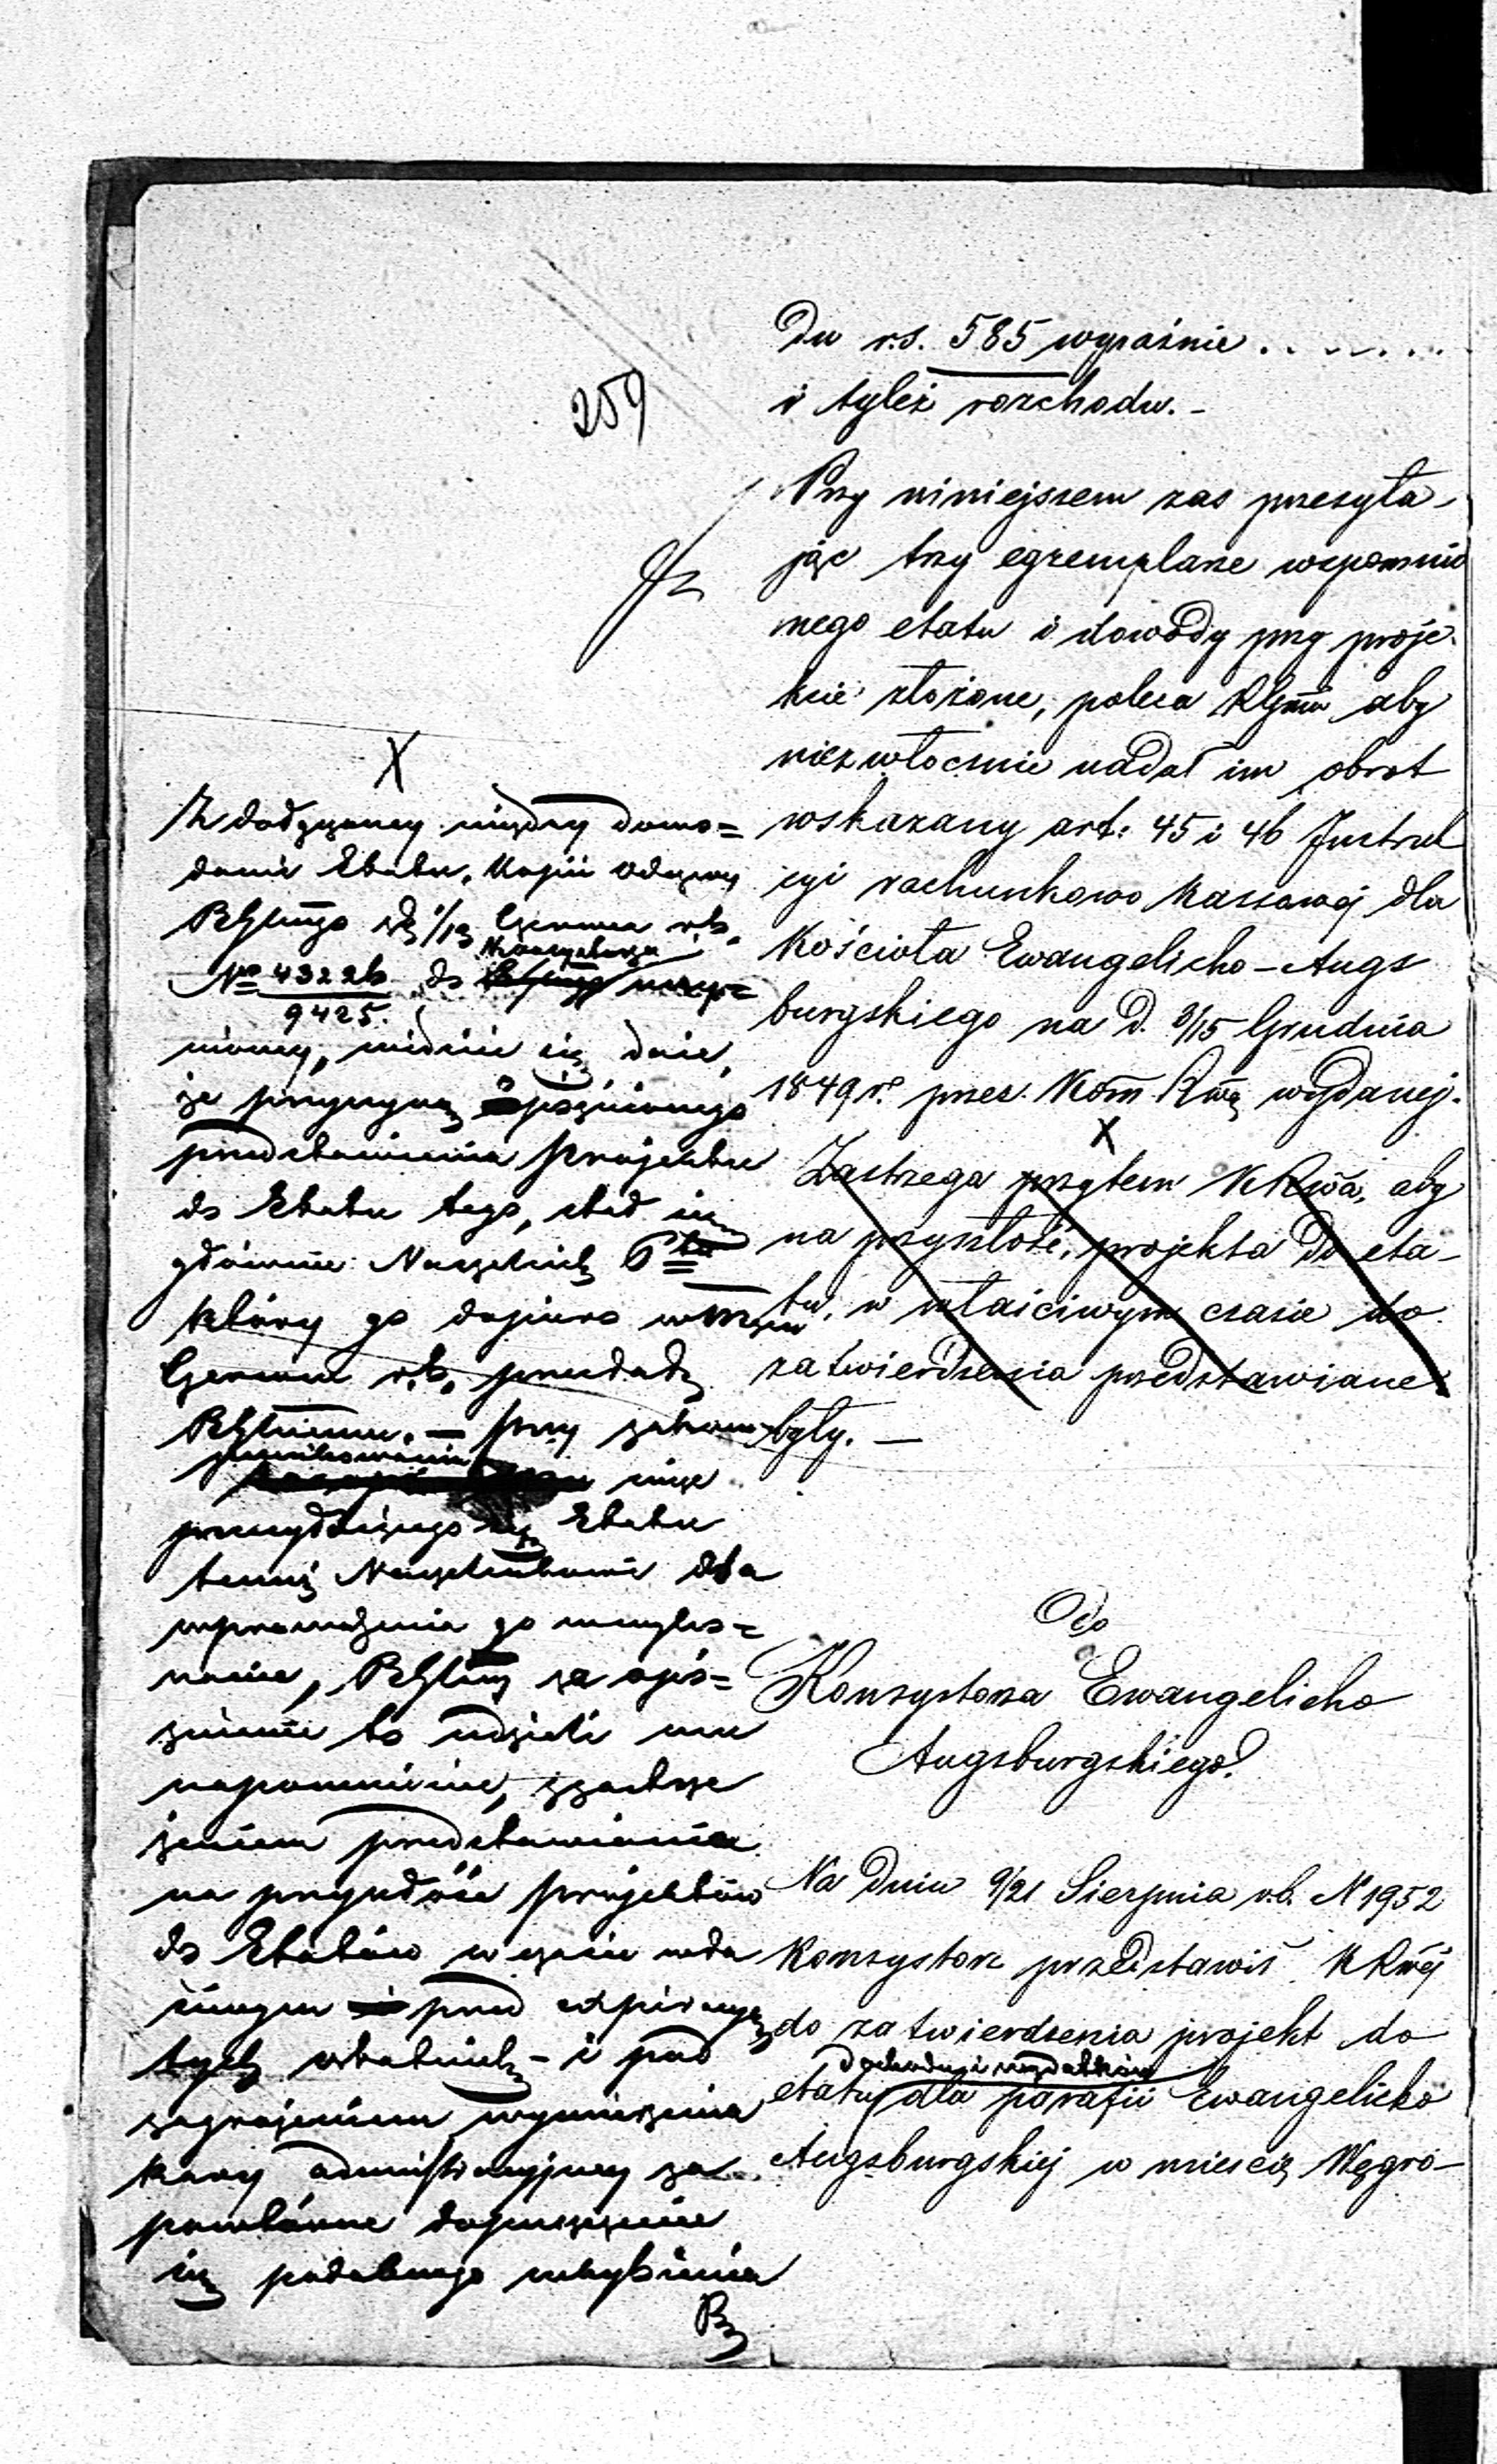 259
Du r.s. 585 wyraźnie . . . . . .
i tyleż rozchodu. -
Przy niniejszem zas przesyła-
jąc trzy egzemplarze wspomnio
nego etatu i dowody przy proje-
kcie złożone, poleca RGmu aby
niezwłocznie nadał im obrot
wskazany art: 45 i 46 Instruk
cyi rachunkowo kassowej dla
Kościoła Ewangelicko-Augs
burgskiego na d. 3/15 Grudnia
1849 r. przez Kom Rwą wydanej.
X
Zastrzega przytem KRwa, aby
na przyszłość, projekta do eta-
tu, w właściwym czasie do
zatwierdzenia przedstawiane
były. —
X
Z dołączoney między dowo=
dami Etatu, Kopii Odezwy
Czerwca r.b.
Konsystorza
№ 43226/9425. do
nioney, widzieć się daje,
że przyczyną opóźnionego
przedstawienia projektu
do Etatu tego, stał się
głównie Naczelnik Ptu
który go dopiero w Mcu
Czerwcu r.b. przesłał
Przy zakom
munikowaniu więc
Etatu
temuż Naczelnikowi dla
wprowadzenia go w wyko=
nanie, za opó=
źnienie to udzieli mu
napomnienie, z zastrze
żeniem przedstawiania
na przyszłość projektów
do Etatów w czasie wła
ściwym przed expiracyą
tych ostatnich - i pod
zagrożeniem wymierzenia
kary administracyjney za
powtórne dopuszczenie
się podobnego uchybienia
Do
Konsystorza Ewangelicko
Augsburgskiego.
Na dniu 9/21 Sierpnia r.b. N 1952
Konsystorz przedstawił KRwej
do zatwierdzenia projekt do
dochodu i wydatków
etatu dla parafii Ewangelicko
Augsburgskiej w mieście Węgro-